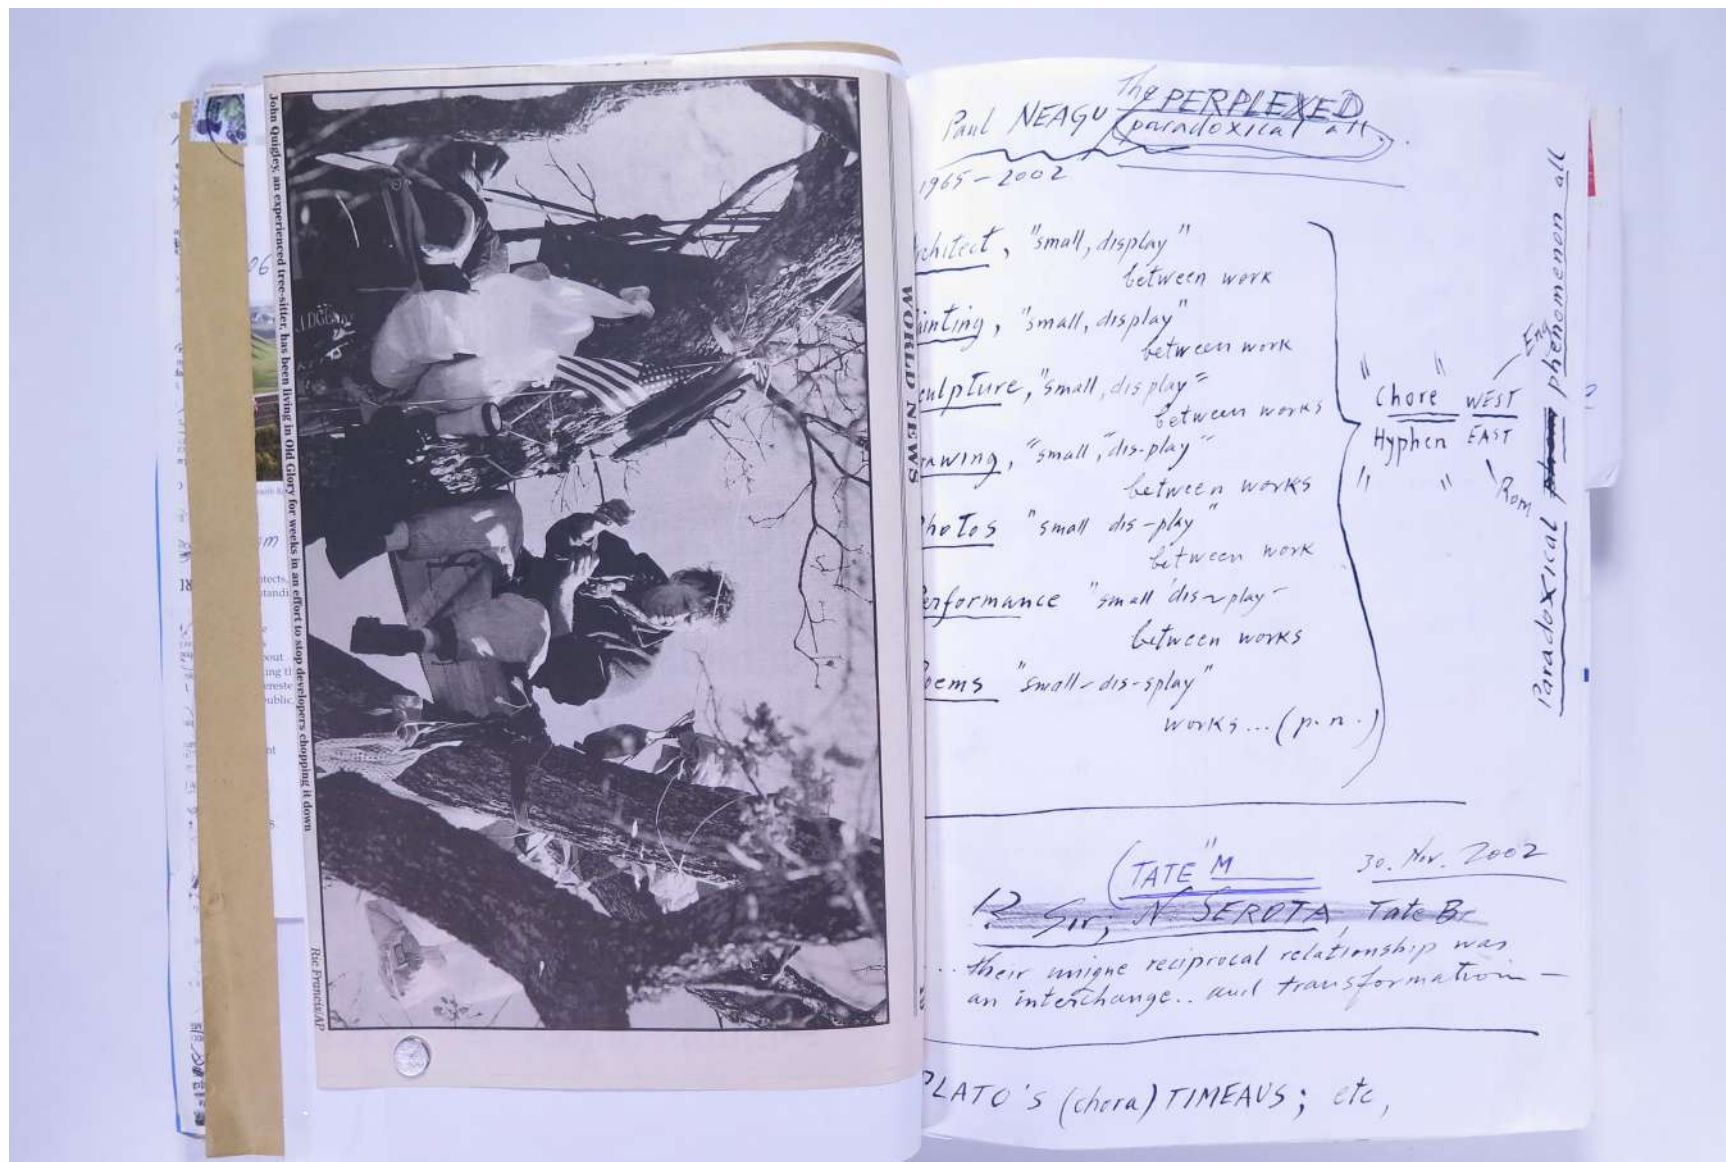 John Quigley, an experienced tree-sitter, has been living in Old Glory for weeks in an effort to stop developers chopping it down
Ric Francis/AP
WORLD NEWS
The PERPLEXED
Paul NEAGU (paradoxical all.)
1965-2002
chitect, "small, display"
between work
inting, "small, display"
between work
culpture, "small, display"
between works
awing, "small, "dis-play"
between works
hotos "small dis-play"
between work
erformance "small dis-play-
between works
oems "small-dis-splay"
works...(p.n.)
" "
Chore WEST
Hyphen EAST
" "
Eng
Rom
Paradoxical phenomenon all
(TATE "M
30. Nov. 2002
Sir; N. SEROTA, Tate Br
... their unique reciprocal relationship was
an interchange.. and transformation -
PLATO'S (chora) TIMEAUS; etc,